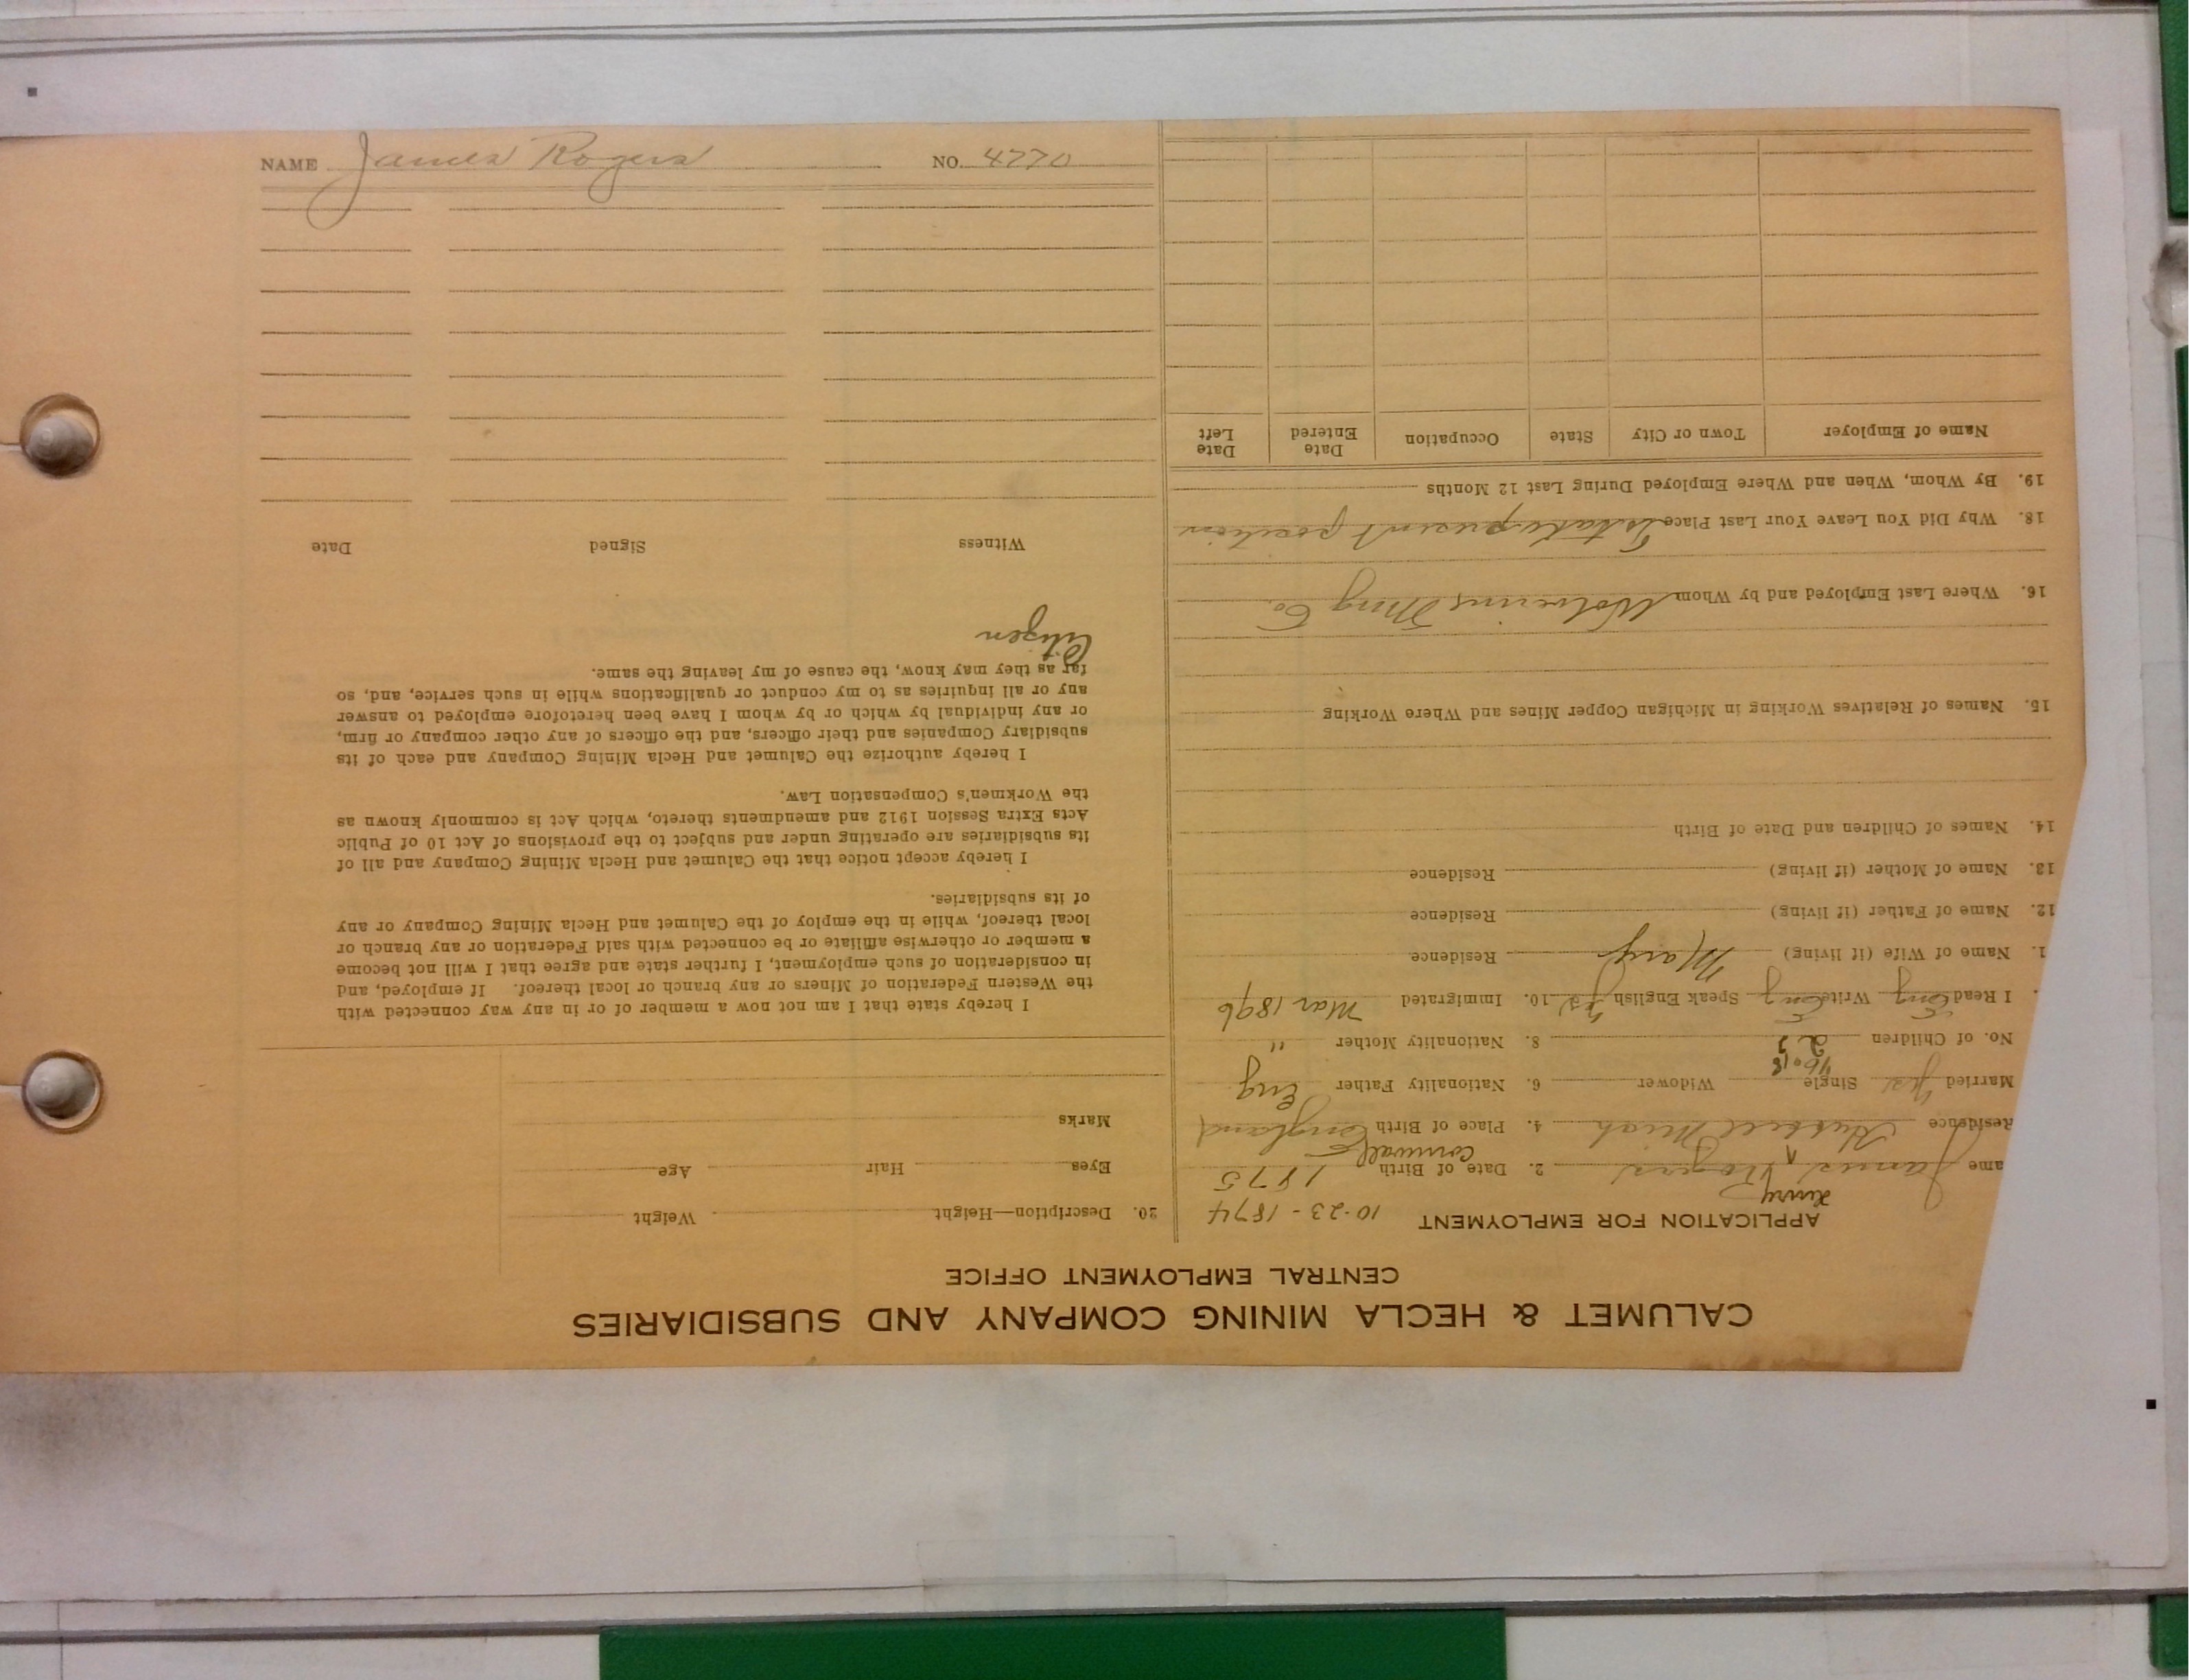 NAME James Rogers NO. 4770
CALUMET & HECLA MINING COMPANY AND SUBSIDIARIES
CENTRAL EMPLOYMENT OFFICE
APPLICATION FOR EMPLOYMENT 10-23-1874
Henry
ame James ^ Rogers 2. Date of Birth 1875
Cornwall
Residence Hubbell Mich 4. Place of Birth England
Married yes Single Widower 6. Nationality Father Eng
No. of Children 2 8. Nationality Mother "
. I Read Eng Write Eng Speak English yes 10. Immigrated Mar 1896
1. Name of Wife (if living) Mary Residence
12. Name of Father (if living) Residence
13. Name of Mother (if living) Residence
14. Names of Children and Date of Birth
15. Names of Relatives Working in Michigan Copper Mines and Where Working
16. Where Last Employed and by Whom Wolverine Mng Co.
18. Why Did You Leave Your Last Place To take present position
19. By Whom, When and Where Employed During Last 12 Months
Name of Employer Town or City State Occupation Date Entered Date Left
20. Description—Height Weight
Eyes Hair Age
Marks
I hereby state that I am not now a member of or in any way connected with
the Western Federation of Miners or any branch or local thereof. If employed, and
in consideration of such employment, I further state and agree that I will not become
a member or otherwise affiliate or be connected with said Federation or any branch or
local thereof, while in the employ of the Calumet and Hecla Mining Company or any
of its subsidiaries.
I hereby accept notice that the Calumet and Hecla Mining Company and all of
its subsidiaries are operating under and subject to the provisions of Act 10 of Public
Acts Extra Session 1912 and amendments thereto, which Act is commonly known as
the Workmen's Compensation Law.
I hereby authorize the Calumet and Hecla Mining Company and each of its
subsidiary Companies and their officers, and the officers of any other company or firm,
or any individual by which or by whom I have been heretofore employed to answer
any or all inquiries as to my conduct or qualifications while in such service, and, so
far as they may know, the cause of my leaving the same.
Citizen
Witness Signed Date